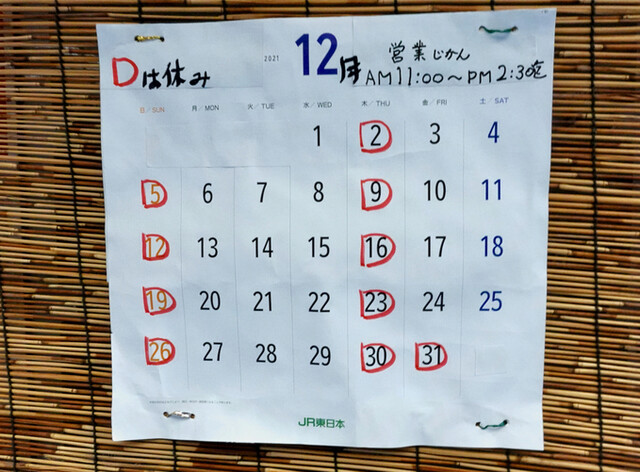 Dは休み
2021
12月
営業じかん
AM11:00〜PM2:30迄
日/SUN 月/MON 火/TUE 水/WED 木/THU 金/FRI 土/SAT
1 2 3 4
5 6 7 8 9 10 11
12 13 14 15 16 17 18
19 20 21 22 23 24 25
26 27 28 29 30 31
JR東日本